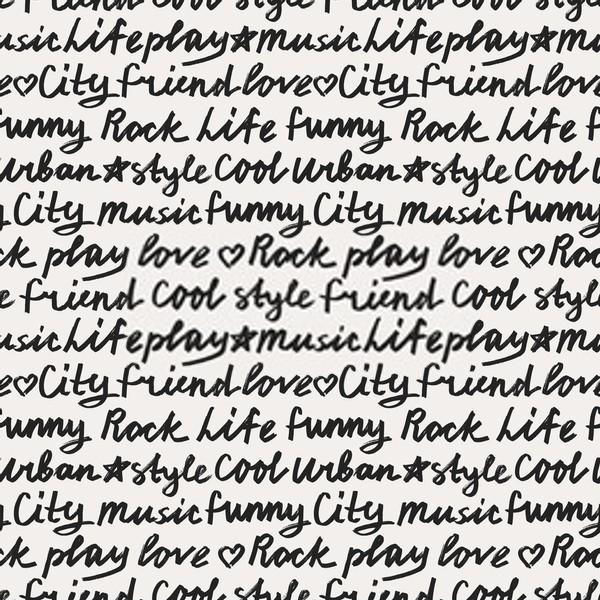 music Life play ☆ music Life play ☆ mu
♡ City friend love ♡ City friend love
funny Rock Life funny Rock Life f
urban ☆ style Cool urban ☆ style Cool
City music funny City music funny
ck play love ♡ Rock play love ♡ Roc
friend Cool style friend Cool style
music Life play ☆ music Life play ☆ mu
♡ City friend love ♡ City friend love
funny Rock Life funny Rock Life f
urban ☆ style Cool urban ☆ style Cool
City music funny City music funny
ck play love ♡ Rock play love ♡ Roc
friend Cool style friend Cool style